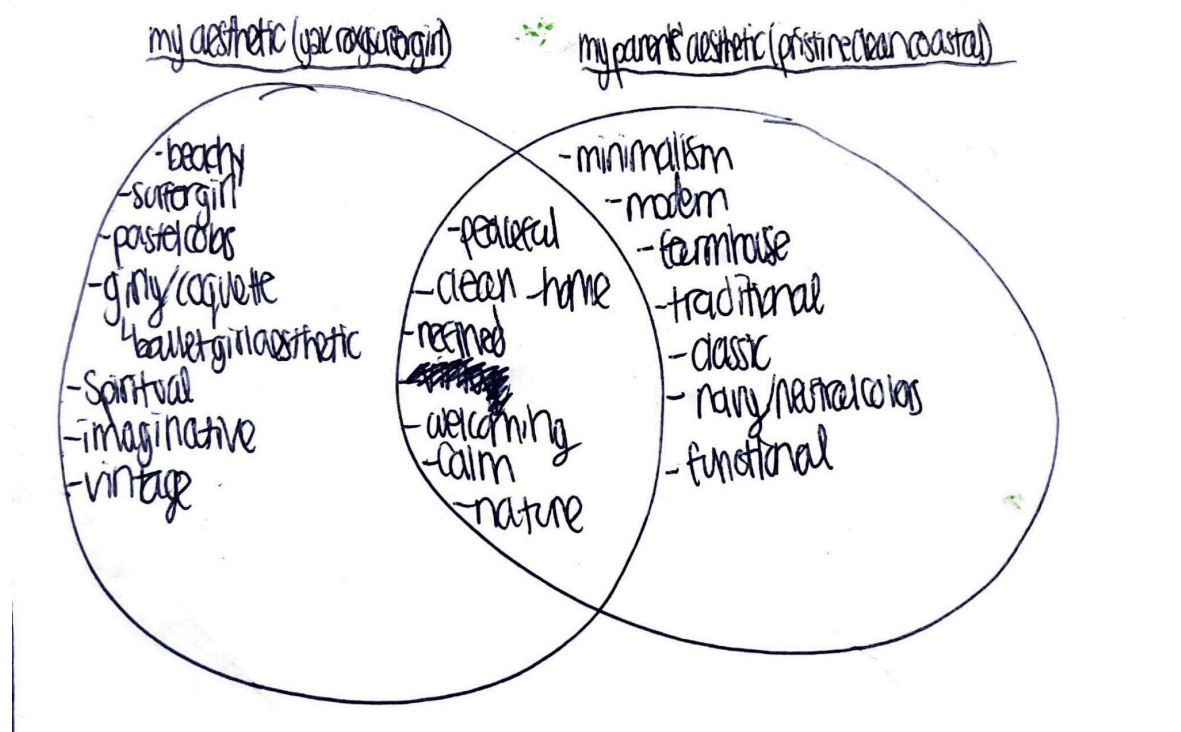 my aesthetic (y2k roxy surfer girl)
my parents' aesthetic (pristine clean coastal)
-beachy
-surfer girl
-pastel colors
-girly/coquette
↳ballet girl aesthetic
-Spiritual
-imaginative
-vintage
-peaceful
-clean -home
-refined
-welcoming
-calm
-nature
-minimalism
-modern
-farmhouse
-traditional
-classic
- navy/neutral colors
- functional